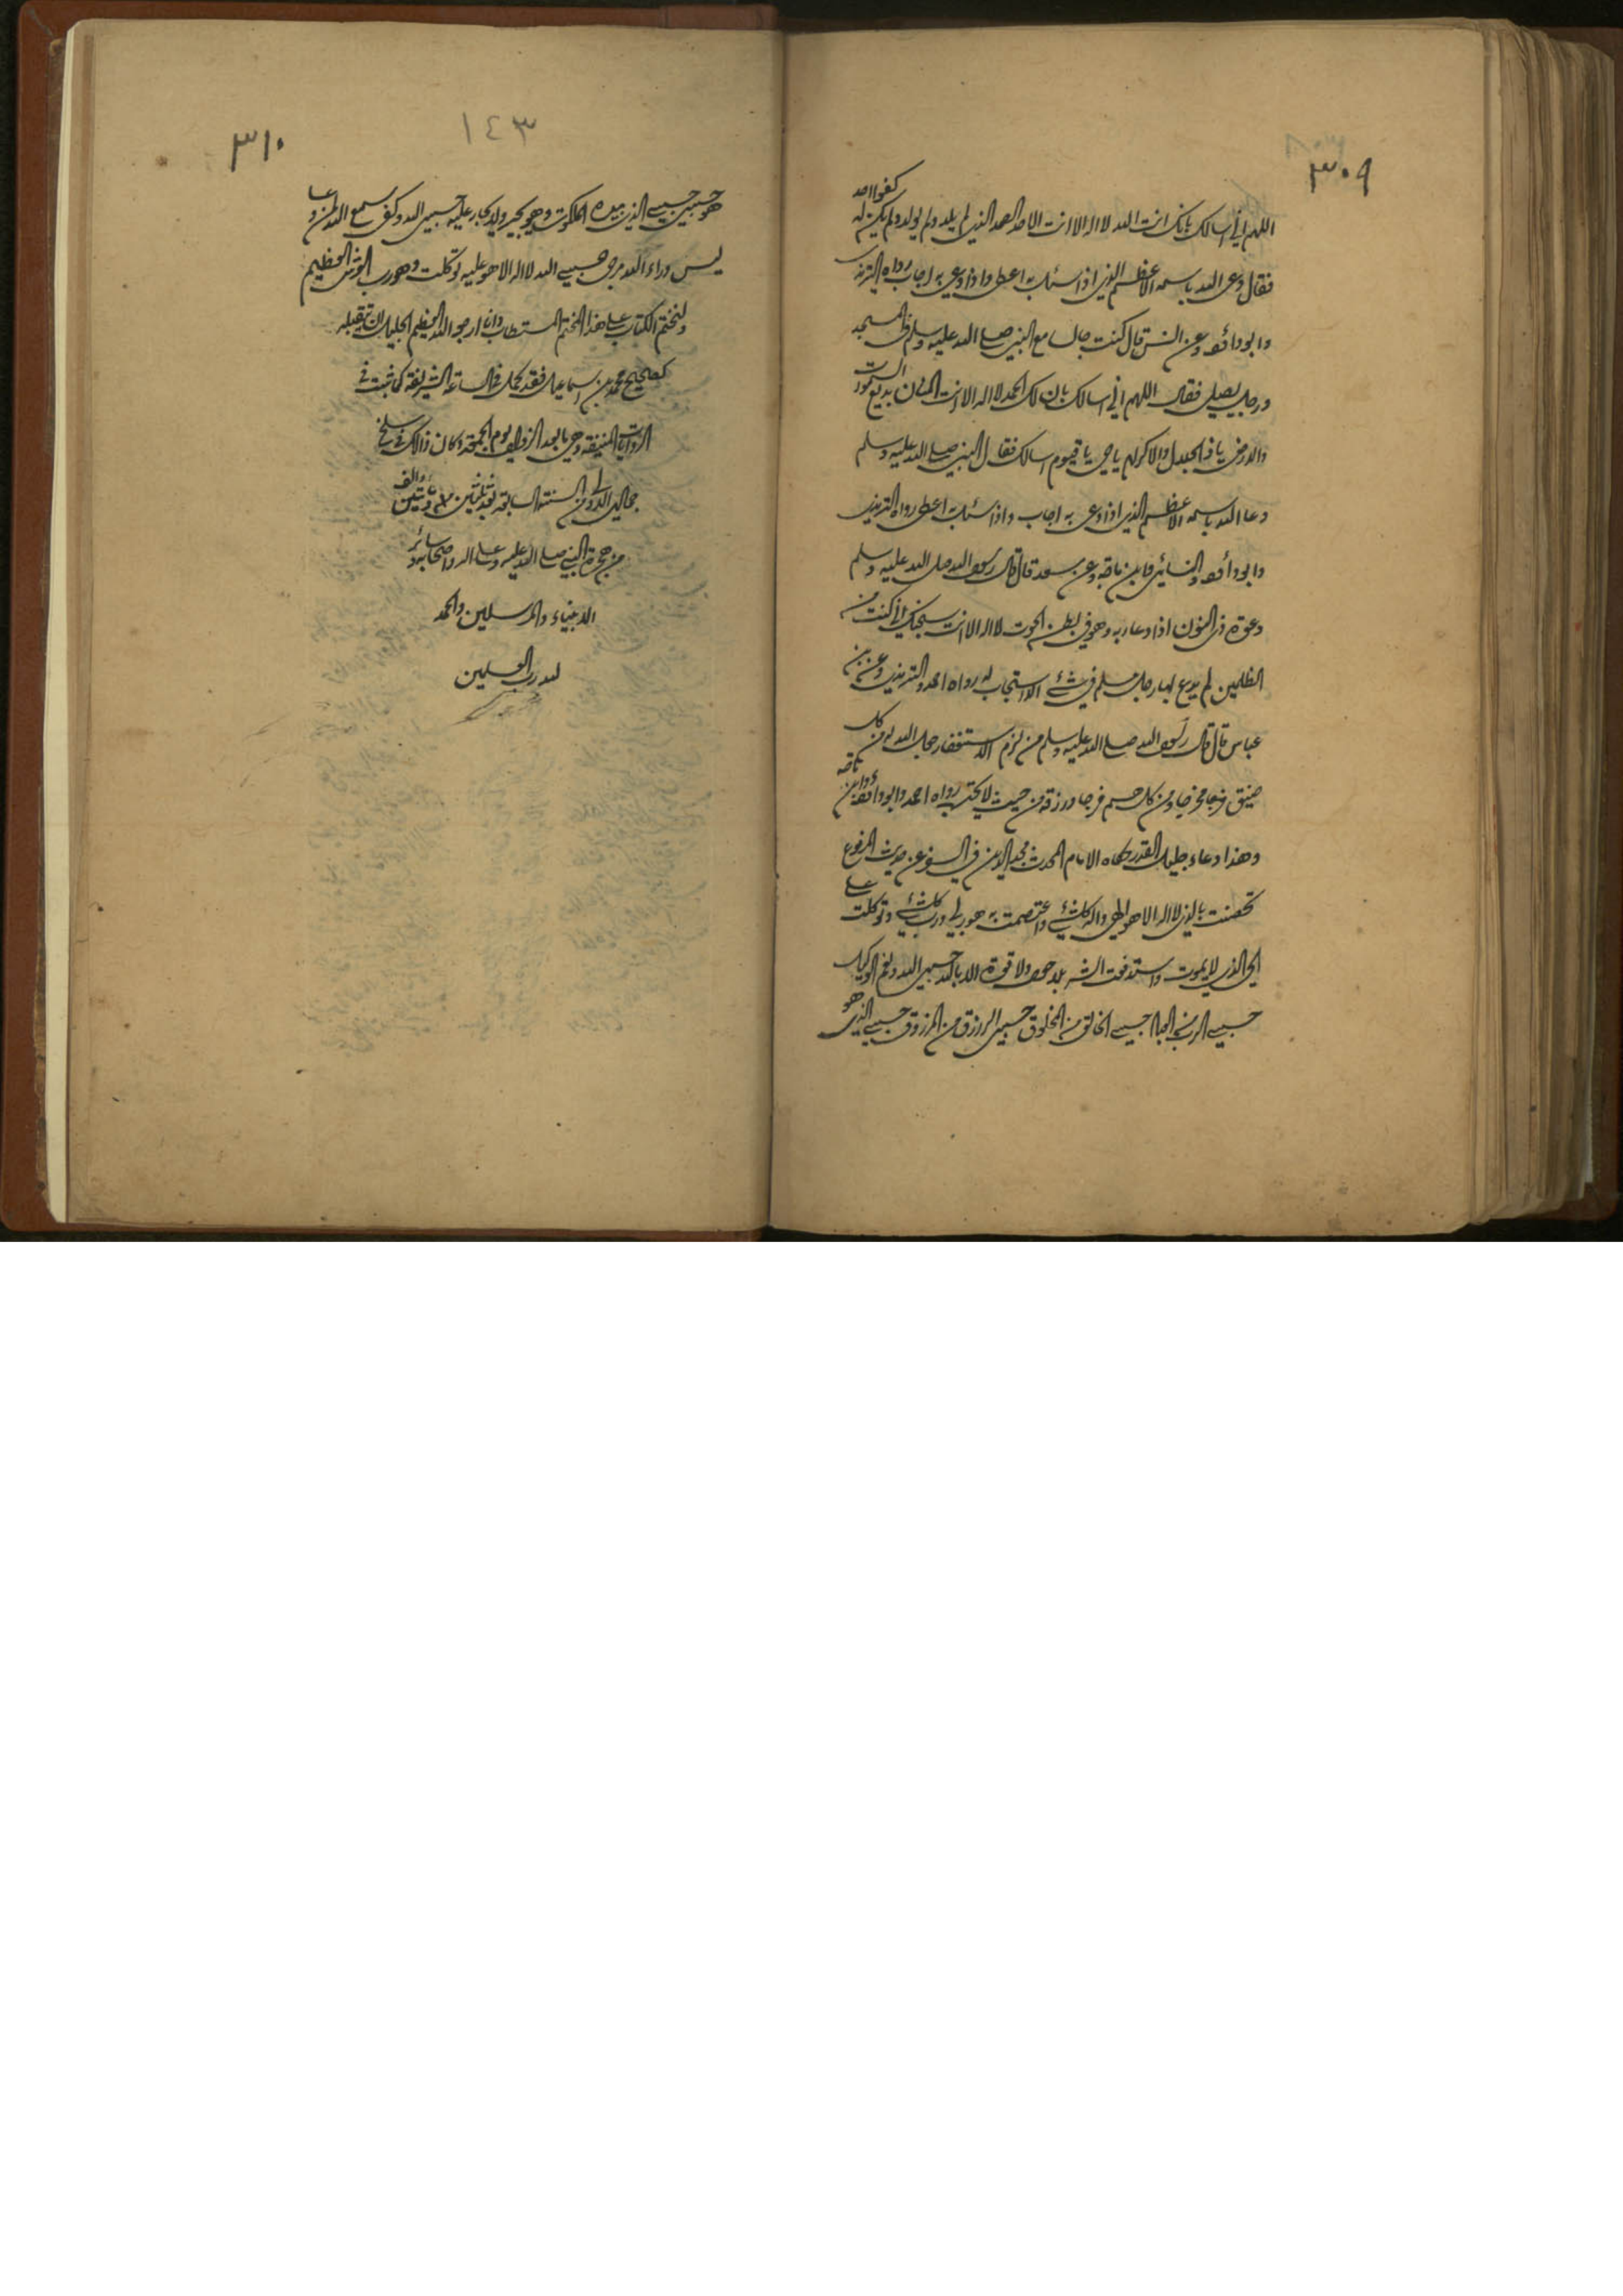 ٣٠٩
اللهم اني اسالك بانك انت الله لا اله الا انت الاحد الصمد الذي لم يلد ولم يولد ولم يكن له كفوا احد
فقال دعى الله باسمه الاعظم الذي اذا سئل به اعطى واذا دعى به اجاب رواه الترمذي
وابو داؤد وعن انس قال كنت جالسا مع النبي صلى الله عليه وسلم فى المسجد
ورجل يصلى فقال اللهم اني اسالك بان لك الحمد لا اله الا انت المنان بديع السموت
والارض يا ذا الجلال والاكرام يا حي يا قيوم اسالك فقال النبي صلى الله عليه وسلم
دعا الله باسمه الاعظم الذي اذا دعى به اجاب واذا سئل به اعطى رواه الترمذي
وابو داؤد والنسائي وابن ماجه وعن سعد قال قال رسول الله صلى الله عليه وسلم
دعوة ذى النون اذا دعا ربه وهو فى بطن الحوت لا اله الا انت سبحنك اني كنت من
الظلمين لم يدع بها رجل مسلم في شئ الا استجاب له رواه احمد والترمذي وعن ابن
عباس قال قال رسول الله صلى الله عليه وسلم من لزم الاستغفار جعل الله له من كل
ضيق مخرجا ومن كل هم فرجا ورزقه من حيث لا يحتسب رواه احمد وابو داؤد وابن ماجه
وهذا دعاء جليل القدر حكاه الامام المحدث مجد الدين في السفر عن حديث المرفوع
تحصنت بالذي لا اله الا هو الهي واله كل شئ واعتصمت به هو ربي ورب كل شئ وتوكلت على
الحي الذي لا يموت واستدفعت الشر بلا حول ولا قوة الا بالله حسبي الله ونعم الوكيل
حسبي الرب من العباد حسبي الخالق من المخلوق حسبي الرازق من المرزوق حسبي الذي هو
٣١٠
١٤٣
هو حسبي حسبي الذي بيده الملكوت وهو يجير ولا يجار عليه حسبي الله وكفى سمع الله لمن دعا
ليس وراء الله مرمى حسبي الله لا اله الا هو عليه توكلت وهو رب العرش العظيم
ولنختم الكتاب على هذا الختم المستطاب وانا ارجو الله العظيم الجليل ان يتقبله
كصحيح محمد بن اسماعيل فقد كمل في الساعة الشريفة كما ثبت في
الروايات المنيفة وهي ما بعد الزوال يوم الجمعة وكان ذالك في سلخ
جمادى الاولى من السنة السابعة بعد ثلثين ومائتين والف
من هجرة النبي صلى الله عليه وعلى اله واصحابه وسائر
الانبياء والمرسلين والحمد
لله رب العلمين